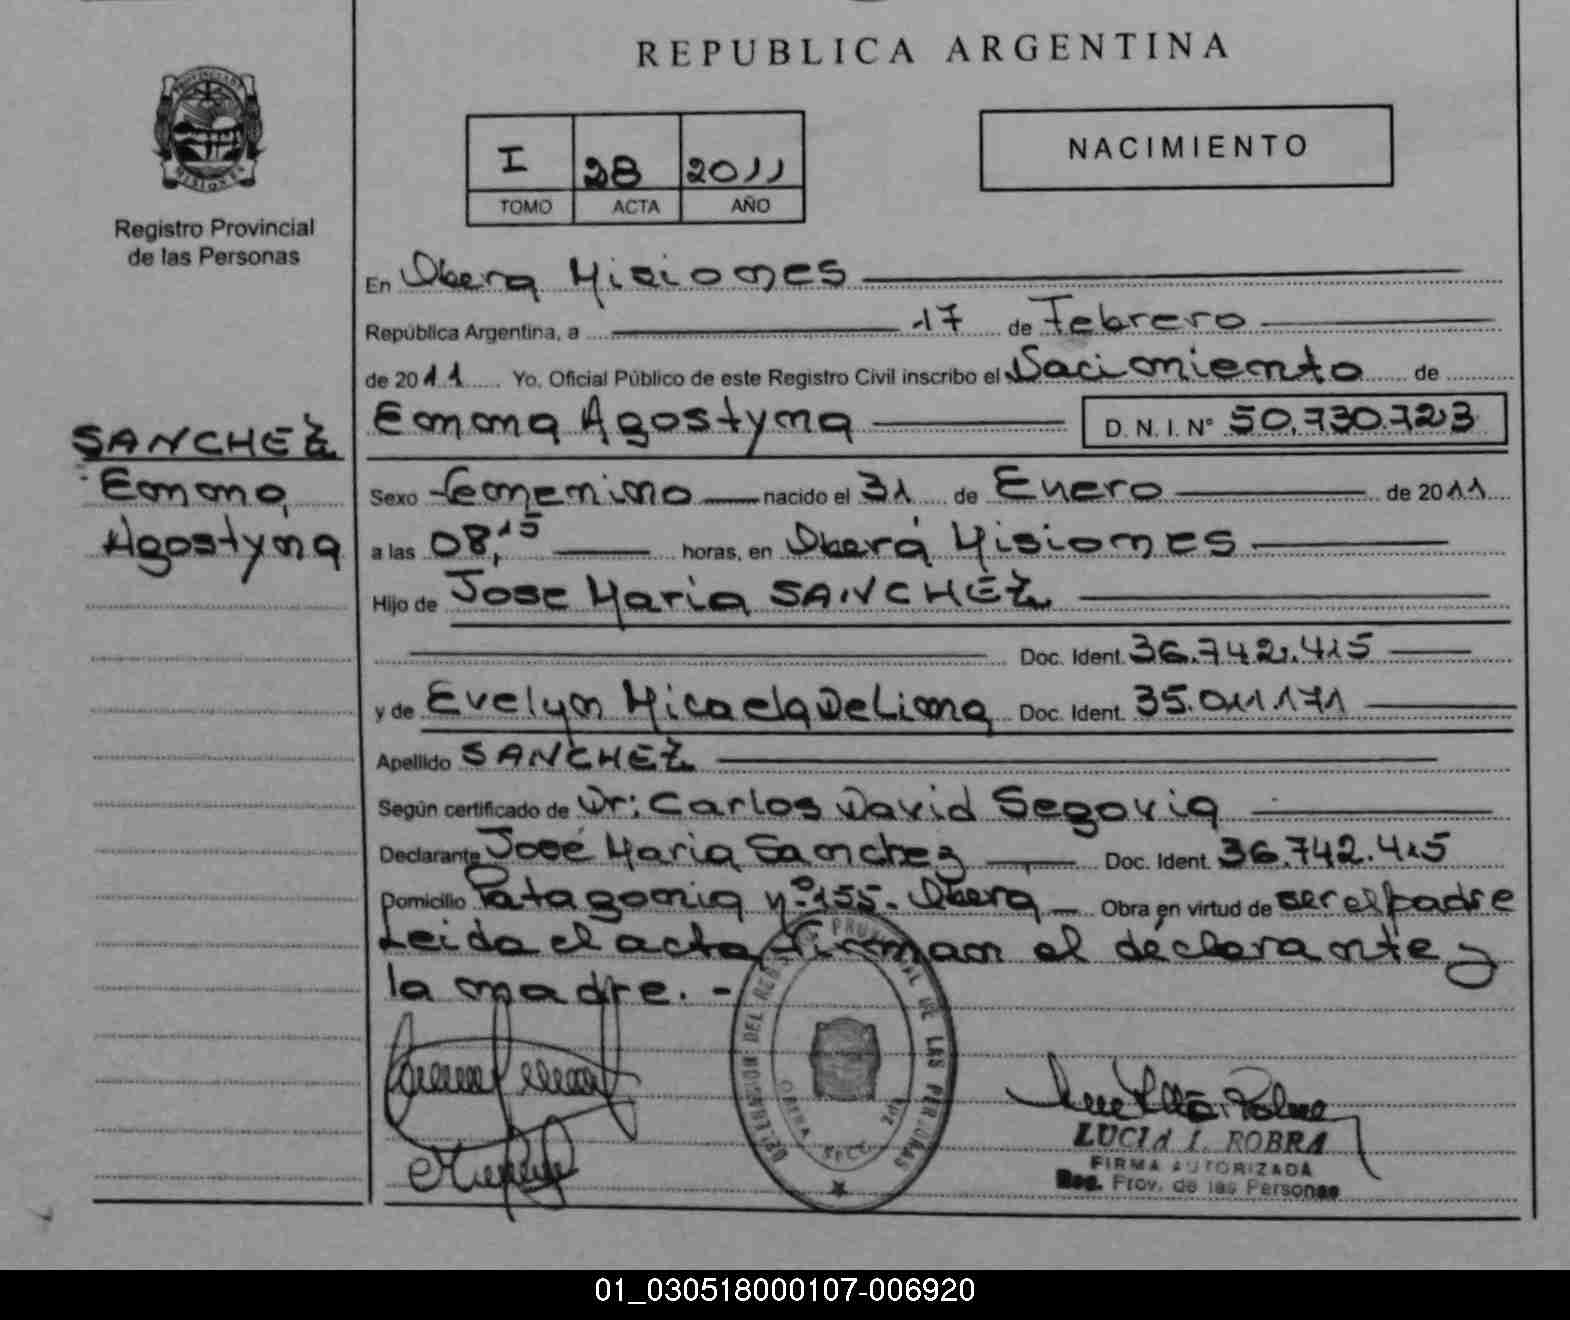 REPUBLICA ARGENTINA
PROVINCIA DE
MISIONES
Registro Provincial
de las Personas
I 28 2011
TOMO ACTA AÑO
NACIMIENTO
En Obera Misiones
República Argentina, a 17 de Febrero
de 2011 Yo, Oficial Público de este Registro Civil inscribo el Nacimiento de
Emma Agostyna D. N. I. N° 50.730.723
SANCHEZ
Emma
Agostyna
Sexo femenino nacido el 31 de Enero de 2011
a las 08,15 horas, en Oberá Misiones
Hijo de Jose Maria SANCHEZ
Doc. Ident. 36.742.415
y de Evelyn Micaela De Lima Doc. Ident. 35.011.171
Apellido SANCHEZ
Según certificado de Dr: Carlos David Segovia
Declarante José Maria Sanchez Doc. Ident. 36.742.415
Domicilio Patagonia N° 155- Obera Obra en virtud de ser el padre
Leida el acta firman el declarante y
la madre.-
DELEGACION DEL REGISTRO PROVINCIAL DE LAS PERSONAS
OBERA SECC
LUCIA I. ROBRA
FIRMA AUTORIZADA
Reg. Prov. de las Personas
01_030518000107-006920